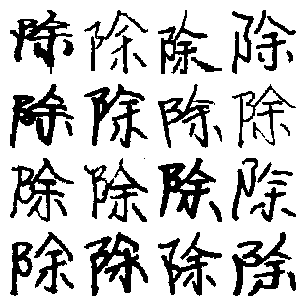 除除除除
除除除除
除除除除
除除除除